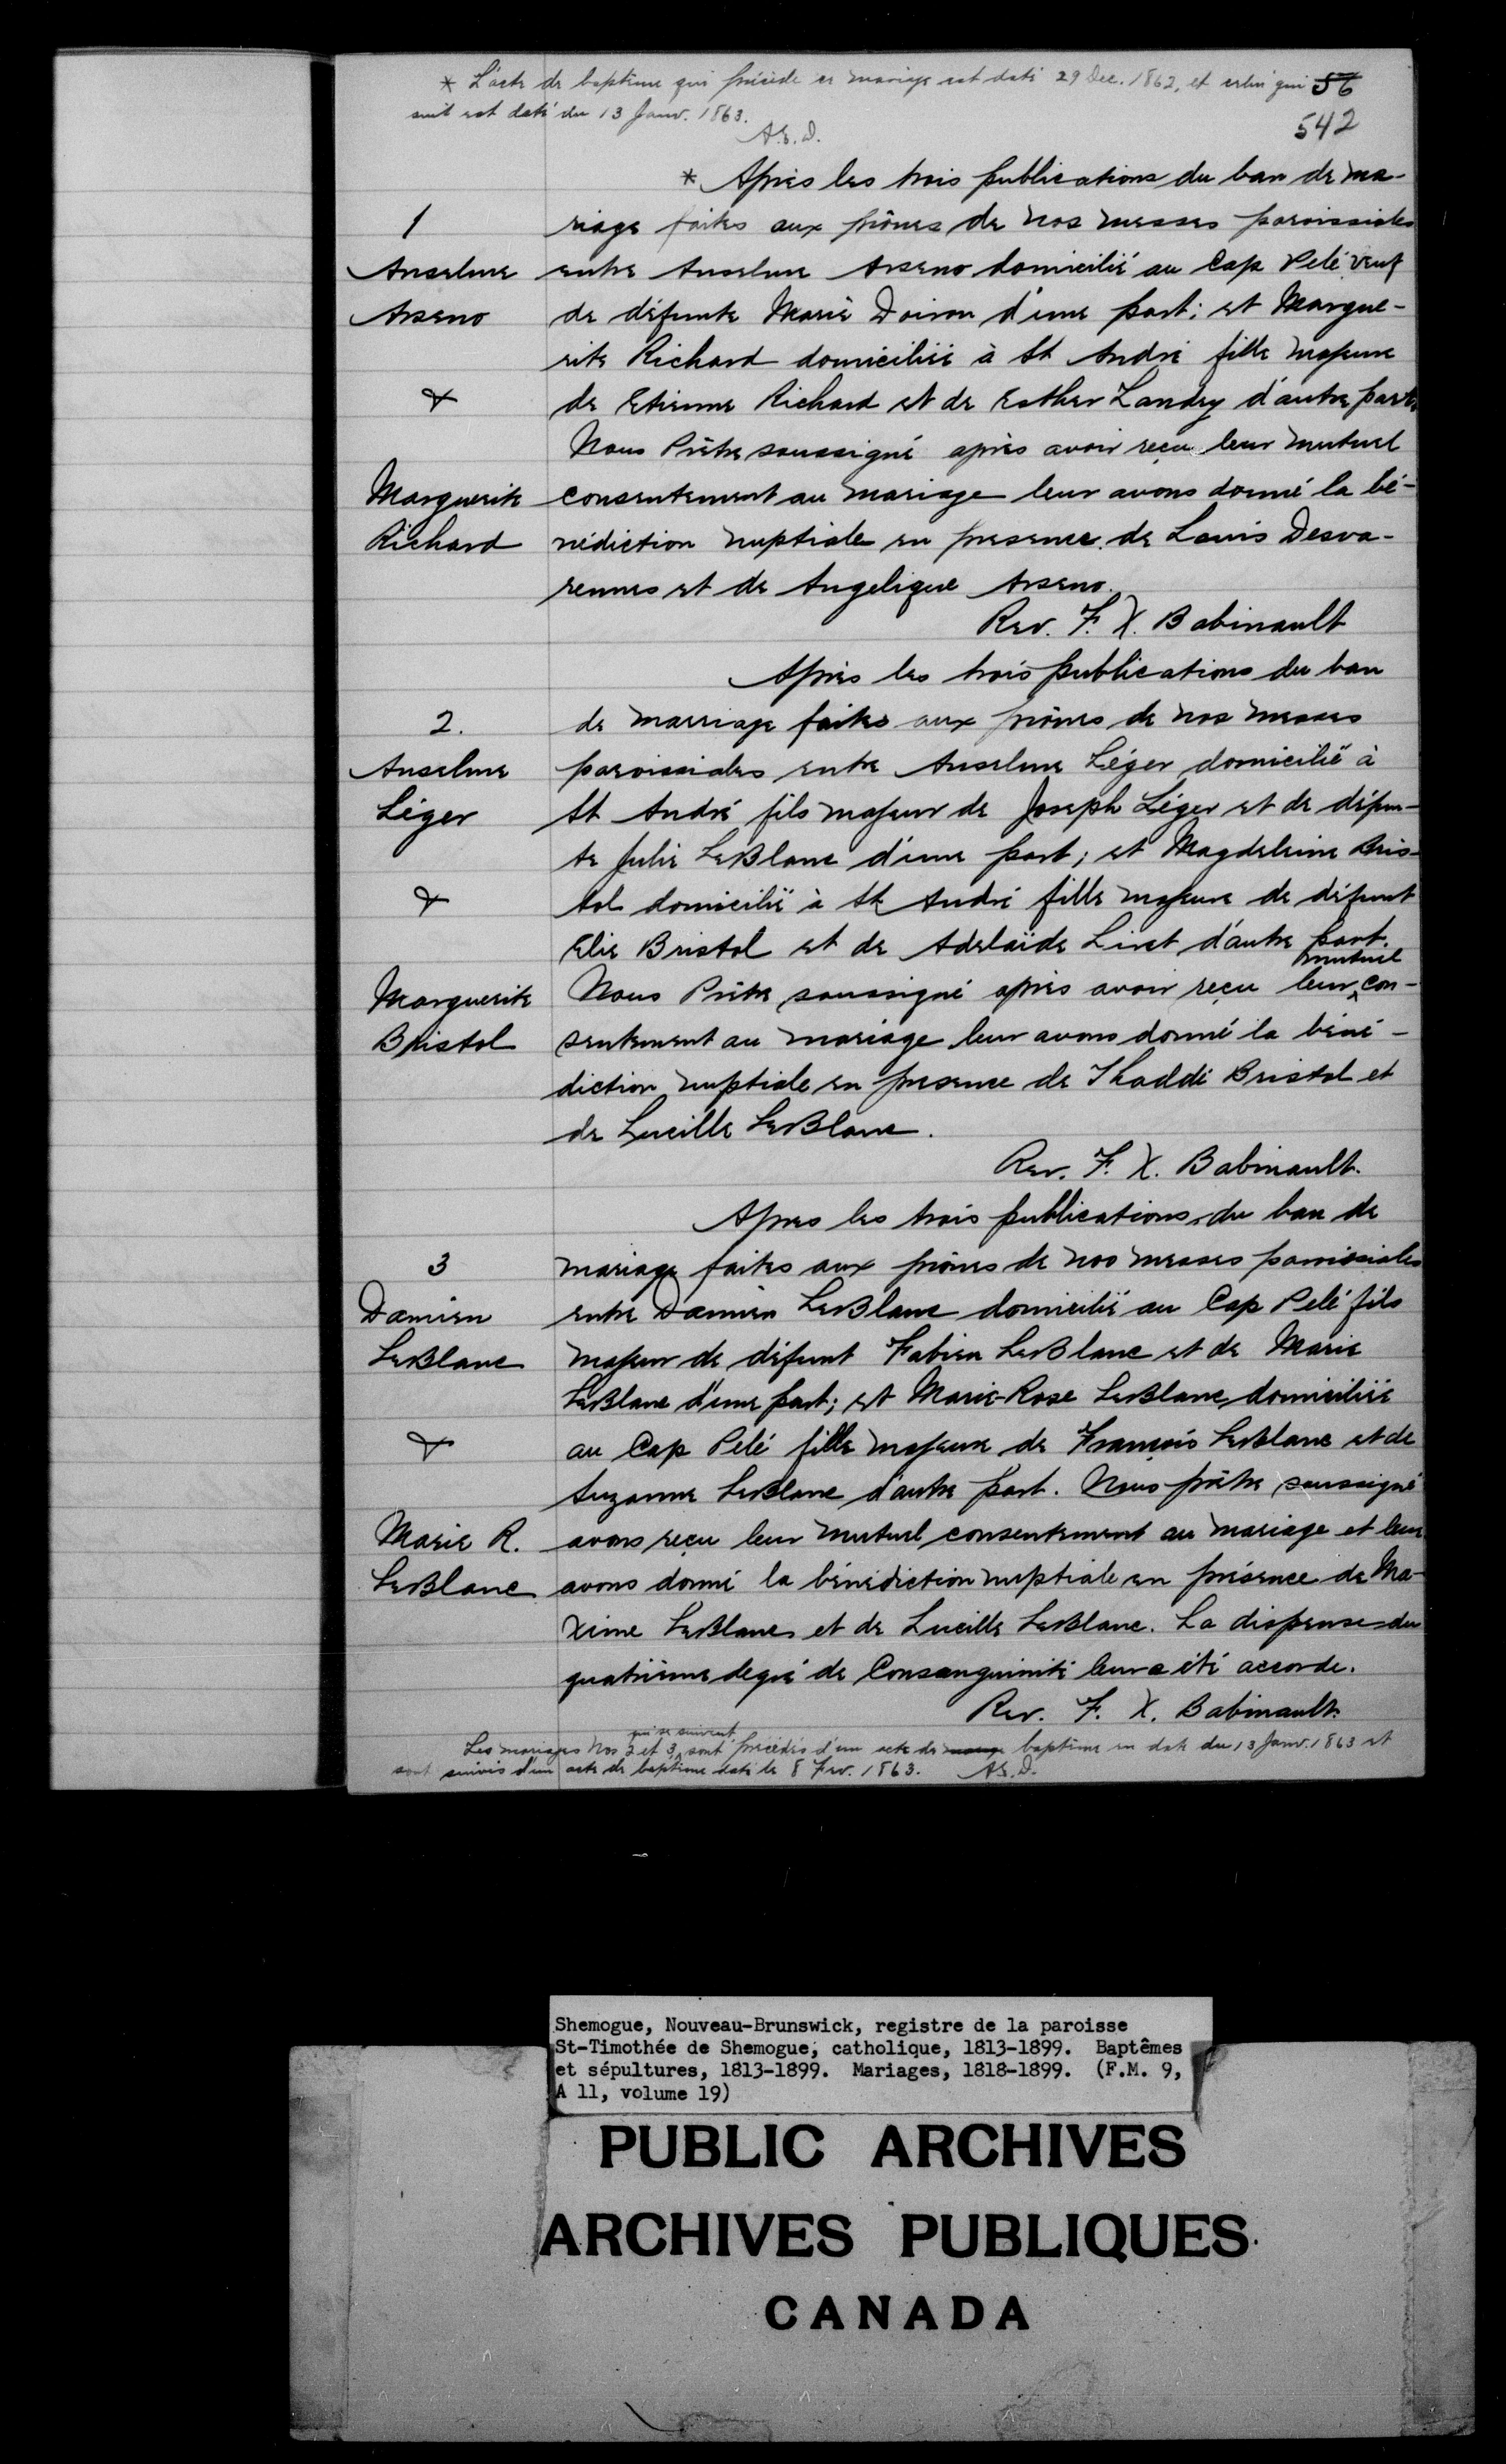 * L'acte de baptême qui précède ce mariage est daté 29 Dec. 1862, et celui qui 56
suit est daté du 13 Janv. 1863.
A.E.D.
542
* Après les trois publications du ban de ma-
1
riage faites aux prônes de nos messes paroissiales
Anselme
entre Anselme Arseno domicilié au Cap Pelé veuf
Arseno
de défunte Marie Doiron d'une part; et Margue-
rite Richard domiciliée à St André fille majeure
&
de Etienne Richard et de Esther Landry d'autre part.
Nous Prêtre soussigné après avoir reçu leur mutuel
Marguerite
consentement au mariage leur avons donné la bé-
Richard
nédiction nuptiale en presence de Louis Desva-
rennes et de Angelique Arseno.
Rev. F. X. Babinault
Après les trois publications du ban
2.
de marriage faites aux prônes de nos messes
Anselme
paroissiales entre Anselme Léger domicilié à
Léger
St André fils majeur de Joseph Léger et de défun-
te Julie LeBlanc d'une part; et Magdeleine Bris-
&
tol domicilié à St André fille majeure de défunt
Elie Bristol et de Adelaïde Liret d'autre part.
mutuel
Marguerite
Nous Prêtre soussigné après avoir reçu leur con-
Bristol
sentement au mariage leur avons donné la béné-
diction nuptiale en presence de Thaddé Bristol et
de Lucille LeBlanc.
Rev. F. X. Babinault.
Apres les trois publications du ban de
3
mariage faites aux prônes de nos messes paroissiales
Damien
entre Damien LeBlanc domicilié au Cap Pelé fils
LeBlanc
majeur de défunt Fabien LeBlanc et de Marie
LeBlanc d'une part; et Marie-Rose LeBlanc domiciliée
&
au Cap Pelé fille majeure de François LeBlanc et de
Suzanne LeBlanc d'autre part. Nous prêtre soussigné
Marie R.
avons reçu leur mutuel consentement au mariage et leur
LeBlanc
avons donné la bénédiction nuptiale en présence de Ma-
xime LeBlanc et de Lucille LeBlanc. La dispense du
quatrième degré de Consanguinité leur a été accorde.
Rev. F. X. Babinault.
qui se suivent
Les mariages Nos 2 et 3, sont précédés d'un acte de baptême en date du 13 Janv. 1863 et
sont suivis d'un acte de baptême daté le 8 Fev. 1863. A.E.D.
Shemogue, Nouveau-Brunswick, registre de la paroisse
St-Timothée de Shemogue, catholique, 1813-1899. Baptêmes
et sépultures, 1813-1899. Mariages, 1818-1899. (F.M. 9,
A 11, volume 19)
PUBLIC ARCHIVES
ARCHIVES PUBLIQUES
CANADA